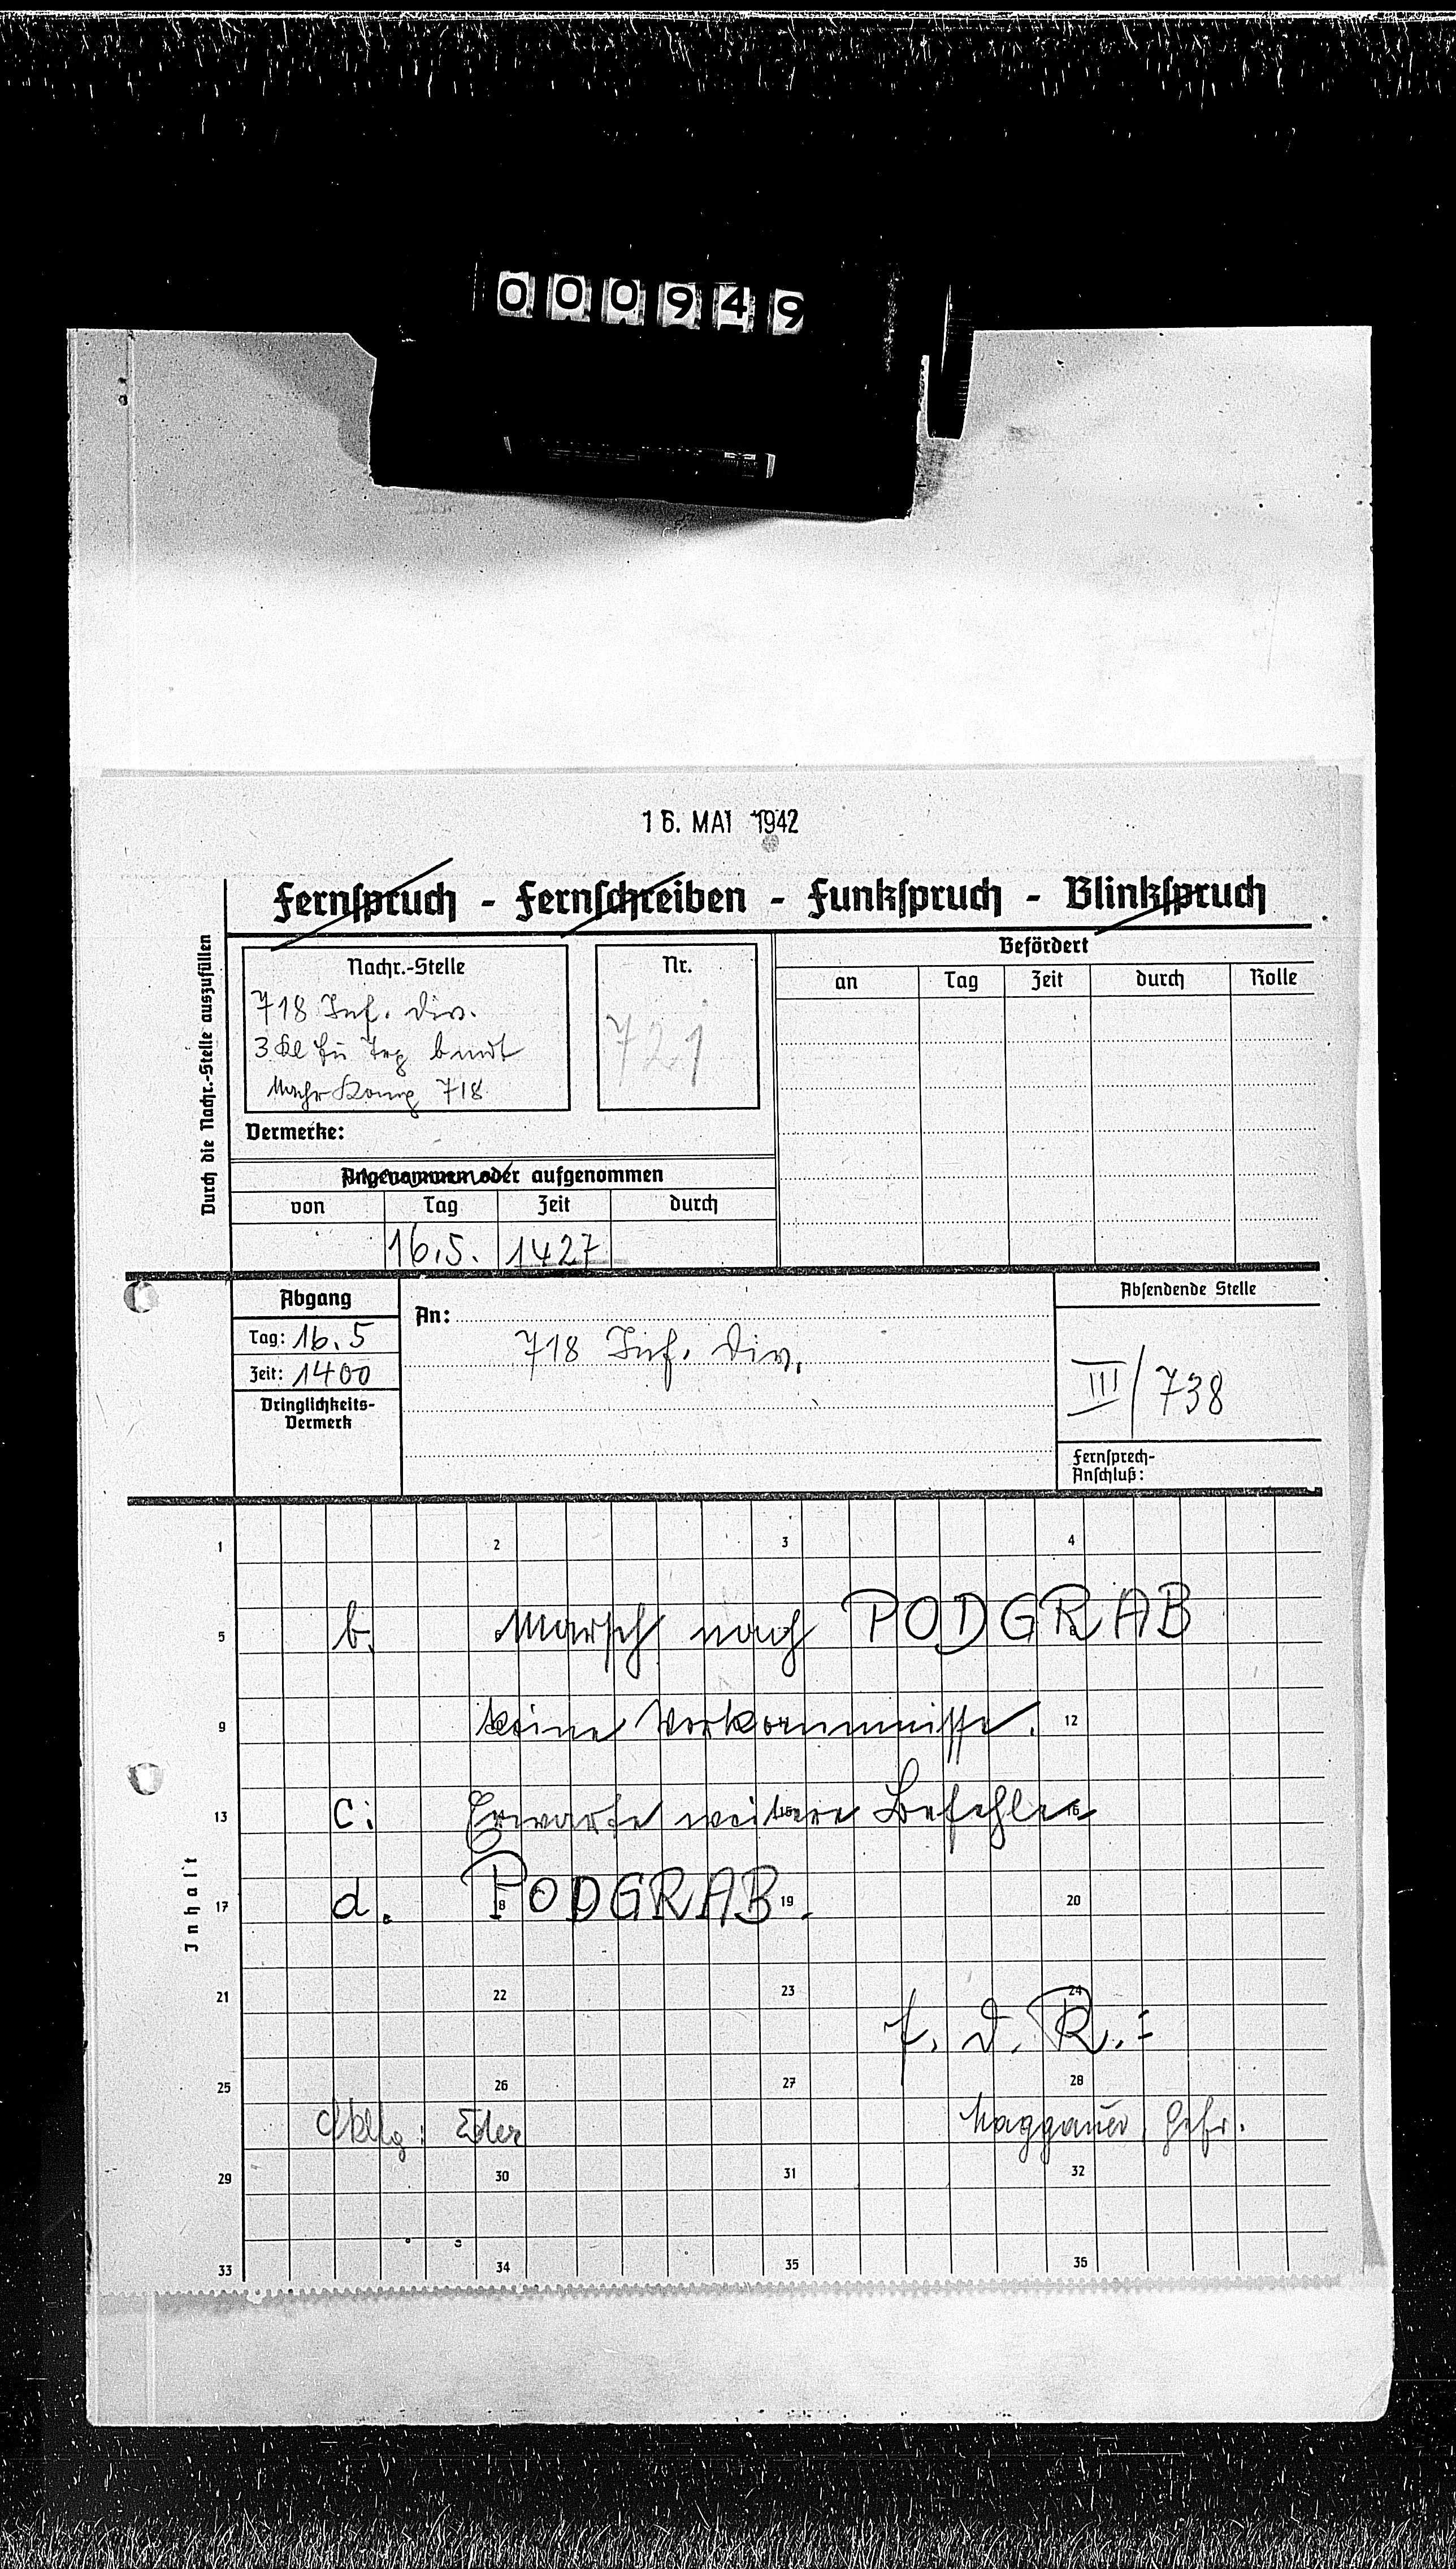 000949
16. MAI 1942
Fernspruch - Fernschreiben - Funkspruch - Blinkspruch
Durch die Nachr.-Stelle auszufüllen
Nachr.-Stelle
718 Inf. Div.
3 Kl Fu Trp b mot
Nachr Komp 718
Nr.
721
Befördert
an Tag Zeit durch Rolle
Vermerke:
Angenommen oder aufgenommen
von Tag Zeit durch
16.5. 1427
Abgang
Tag: 16.5
Zeit: 1400
Dringlichkeits-
Vermerk
An:
718 Inf. Div.
Absendende Stelle
III/738
Fernsprech-
Anschluß:
Inhalt
1 2 3 4
b. Marsch nach PODGRAB
5 8
keine Vorkommnisse.
9 12
c: Erwarte weitere Befehle
13 15 16
d. PODGRAB.
17 18 19 20
21 22 23 24
f. d. R.:
25 26 27 28
Eder Gefr.
29 30 31 32
33 34 35 36